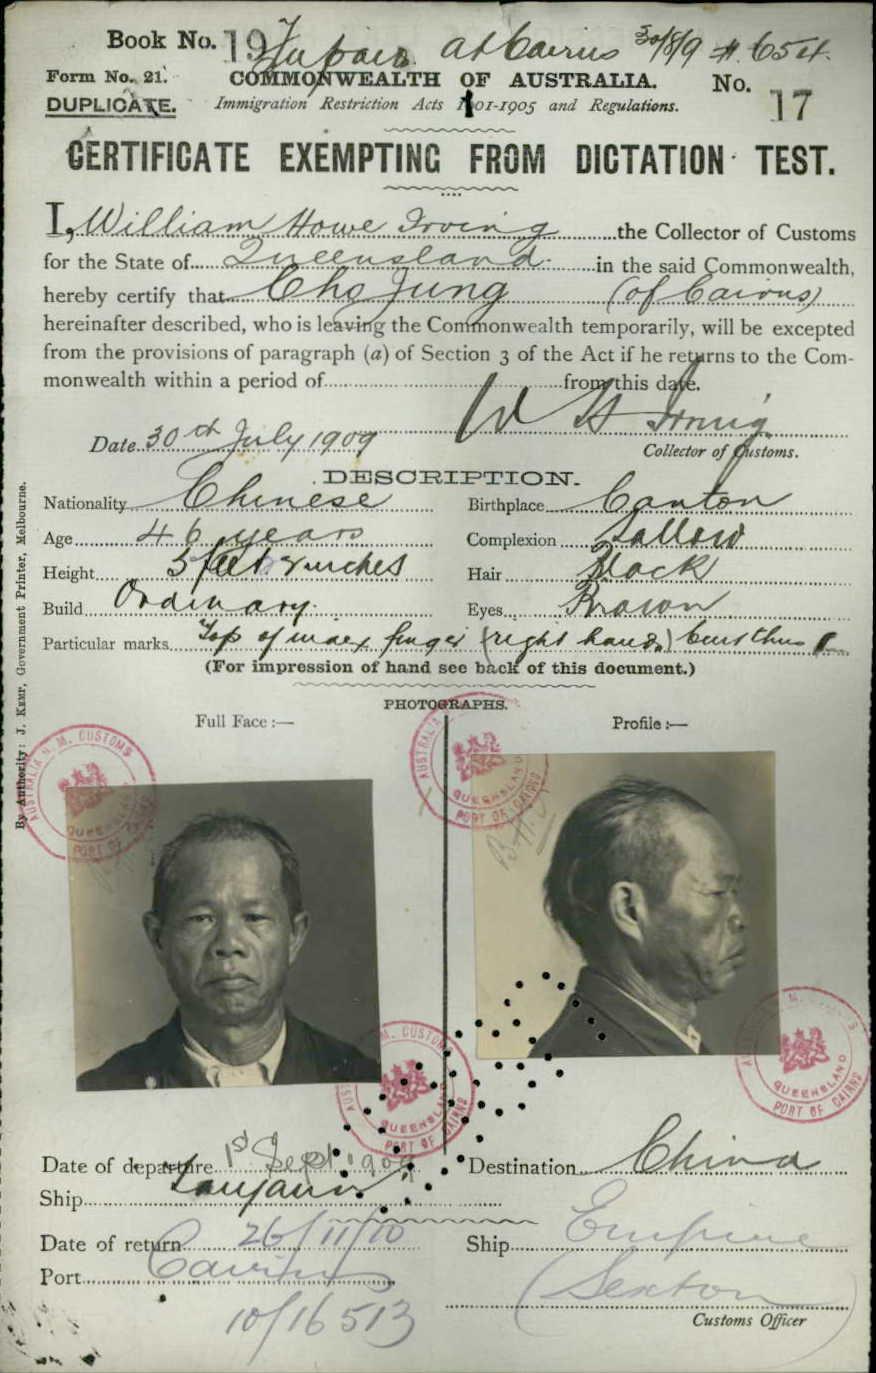 Book No. 19
at Cairns 30/8/9 # 654.
Form No. 21. COMMONWEALTH OF AUSTRALIA. No. 17
DUPLICATE. Immigration Restriction Acts 1901-1905 and Regulations.
CERTIFICATE EXEMPTING FROM DICTATION TEST.
I, William Howe Irving the Collector of Customs
for the State of Queensland in the said Commonwealth,
hereby certify that Cho Jung (of Cairns)
hereinafter described, who is leaving the Commonwealth temporarily, will be excepted
from the provisions of paragraph (a) of Section 3 of the Act if he returns to the Com-
monwealth within a period of from this date.
W H Irving
Date 30th July 1909
Collector of Customs.
DESCRIPTION.
Nationality Chinese Birthplace Canton
Age 46 years Complexion Sallow
Height 5 feet 2 inches Hair Black
Build Ordinary. Eyes Brown
Particular marks Top of index finger (right hand)
(For impression of hand see back of this document.)
PHOTOGRAPHS.
Full Face :— Profile :—
AUSTRALIA H. M. CUSTOMS QUEENSLAND PORT OF CAIRNS
AUSTRALIA QUEENSLAND PORT OF CAIRNS
M. CUSTOMS QUEENSLAND PORT OF CAIRNS
QUEENSLAND PORT OF CAIRNS
Date of departure 1st Sept 1909 Destination China
Ship
Date of return 26/11/10 Ship Empire
Port Cairns
(Sexton)
10/16513
Customs Officer
By Authority: J. KEMP, Government Printer, Melbourne.